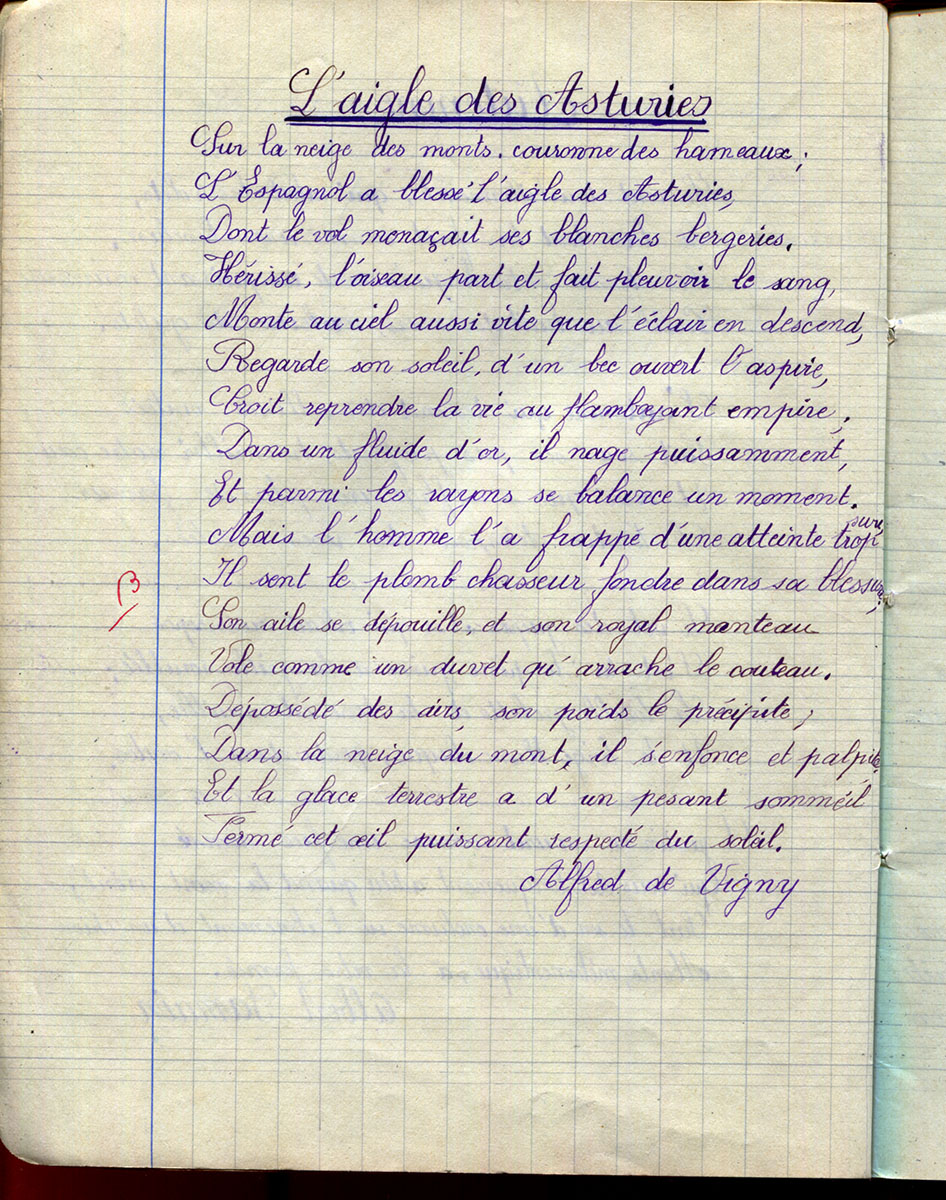 L'aigle des Asturies
Sur la neige des monts, couronne des hameaux;
L'Espagnol a blessé l'aigle des Asturies,
Dont le vol menaçait ses blanches bergeries.
Hérissé, l'oiseau part et fait pleuvoir le sang,
Monte au ciel aussi vite que l'éclair en descend,
Regarde son soleil, d'un bec ouvert l'aspire,
Croit reprendre la vie au flamboyant empire;
Dans un fluide d'or, il nage puissamment,
Et parmi les rayons se balance un moment.
Mais l'homme l'a frappé d'une atteinte trop sure,
Il sent le plomb chasseur fondre dans sa blessure;
Son aile se dépouille, et son royal manteau
Vole comme un duvet qu'arrache le couteau.
Dépossédé des airs, son poids le précipite;
Dans la neige du mont, il s'enfonce et palpite
Et la glace terrestre a d'un pesant sommeil
Fermé cet œil puissant respecté du soleil.
Alfred de Vigny